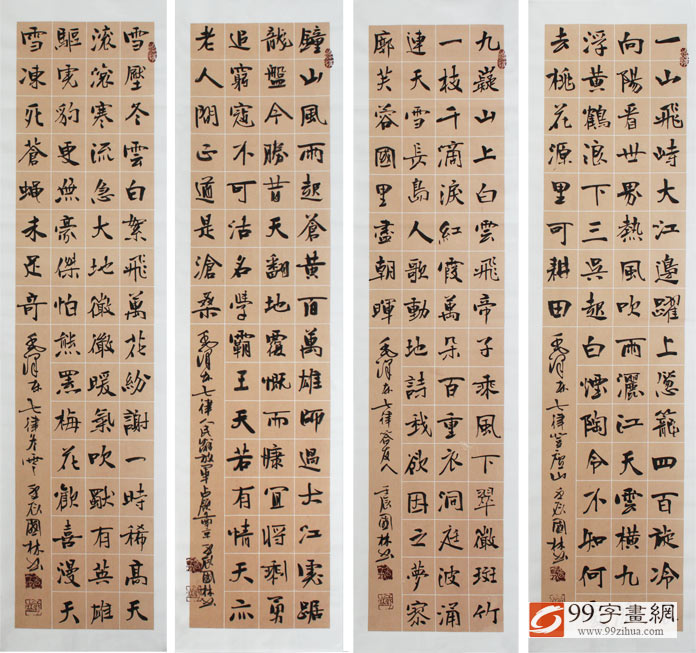 一山飛峙大江邊躍上葱籠四百旋冷
向陽看世界熱風吹雨灑江天雲橫九
浮黄鶴浪下三吳起白煙陶令不知何
去桃花源里可耕田
毛澤東七律登廬山 壬辰國林書
九嶷山上白雲飛帝子乘風下翠微斑竹
一枝千滴淚紅霞萬朵百重衣洞庭波涌
連天雪長島人歌動地詩我欲因之夢寥
廓芙蓉國里盡朝暉
毛澤東七律答友人 壬辰國林書
鐘山風雨起蒼黃百萬雄師過大江虎踞
龍盤今勝昔天翻地覆慨而慷宜將剩勇
追窮寇不可沽名學霸王天若有情天亦
老人間正道是滄桑
毛澤東七律人民解放軍占領南京 壬辰國林書
雪壓冬雲白絮飛萬花紛謝一時稀高天
滾滾寒流急大地微微暖氣吹獨有英雄
驅虎豹更無豪傑怕熊羆梅花歡喜漫天
雪凍死蒼蠅未足奇
毛澤東七律冬雲 壬辰國林書
99字畫網
www.99zihua.com